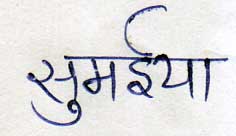 सुमईया